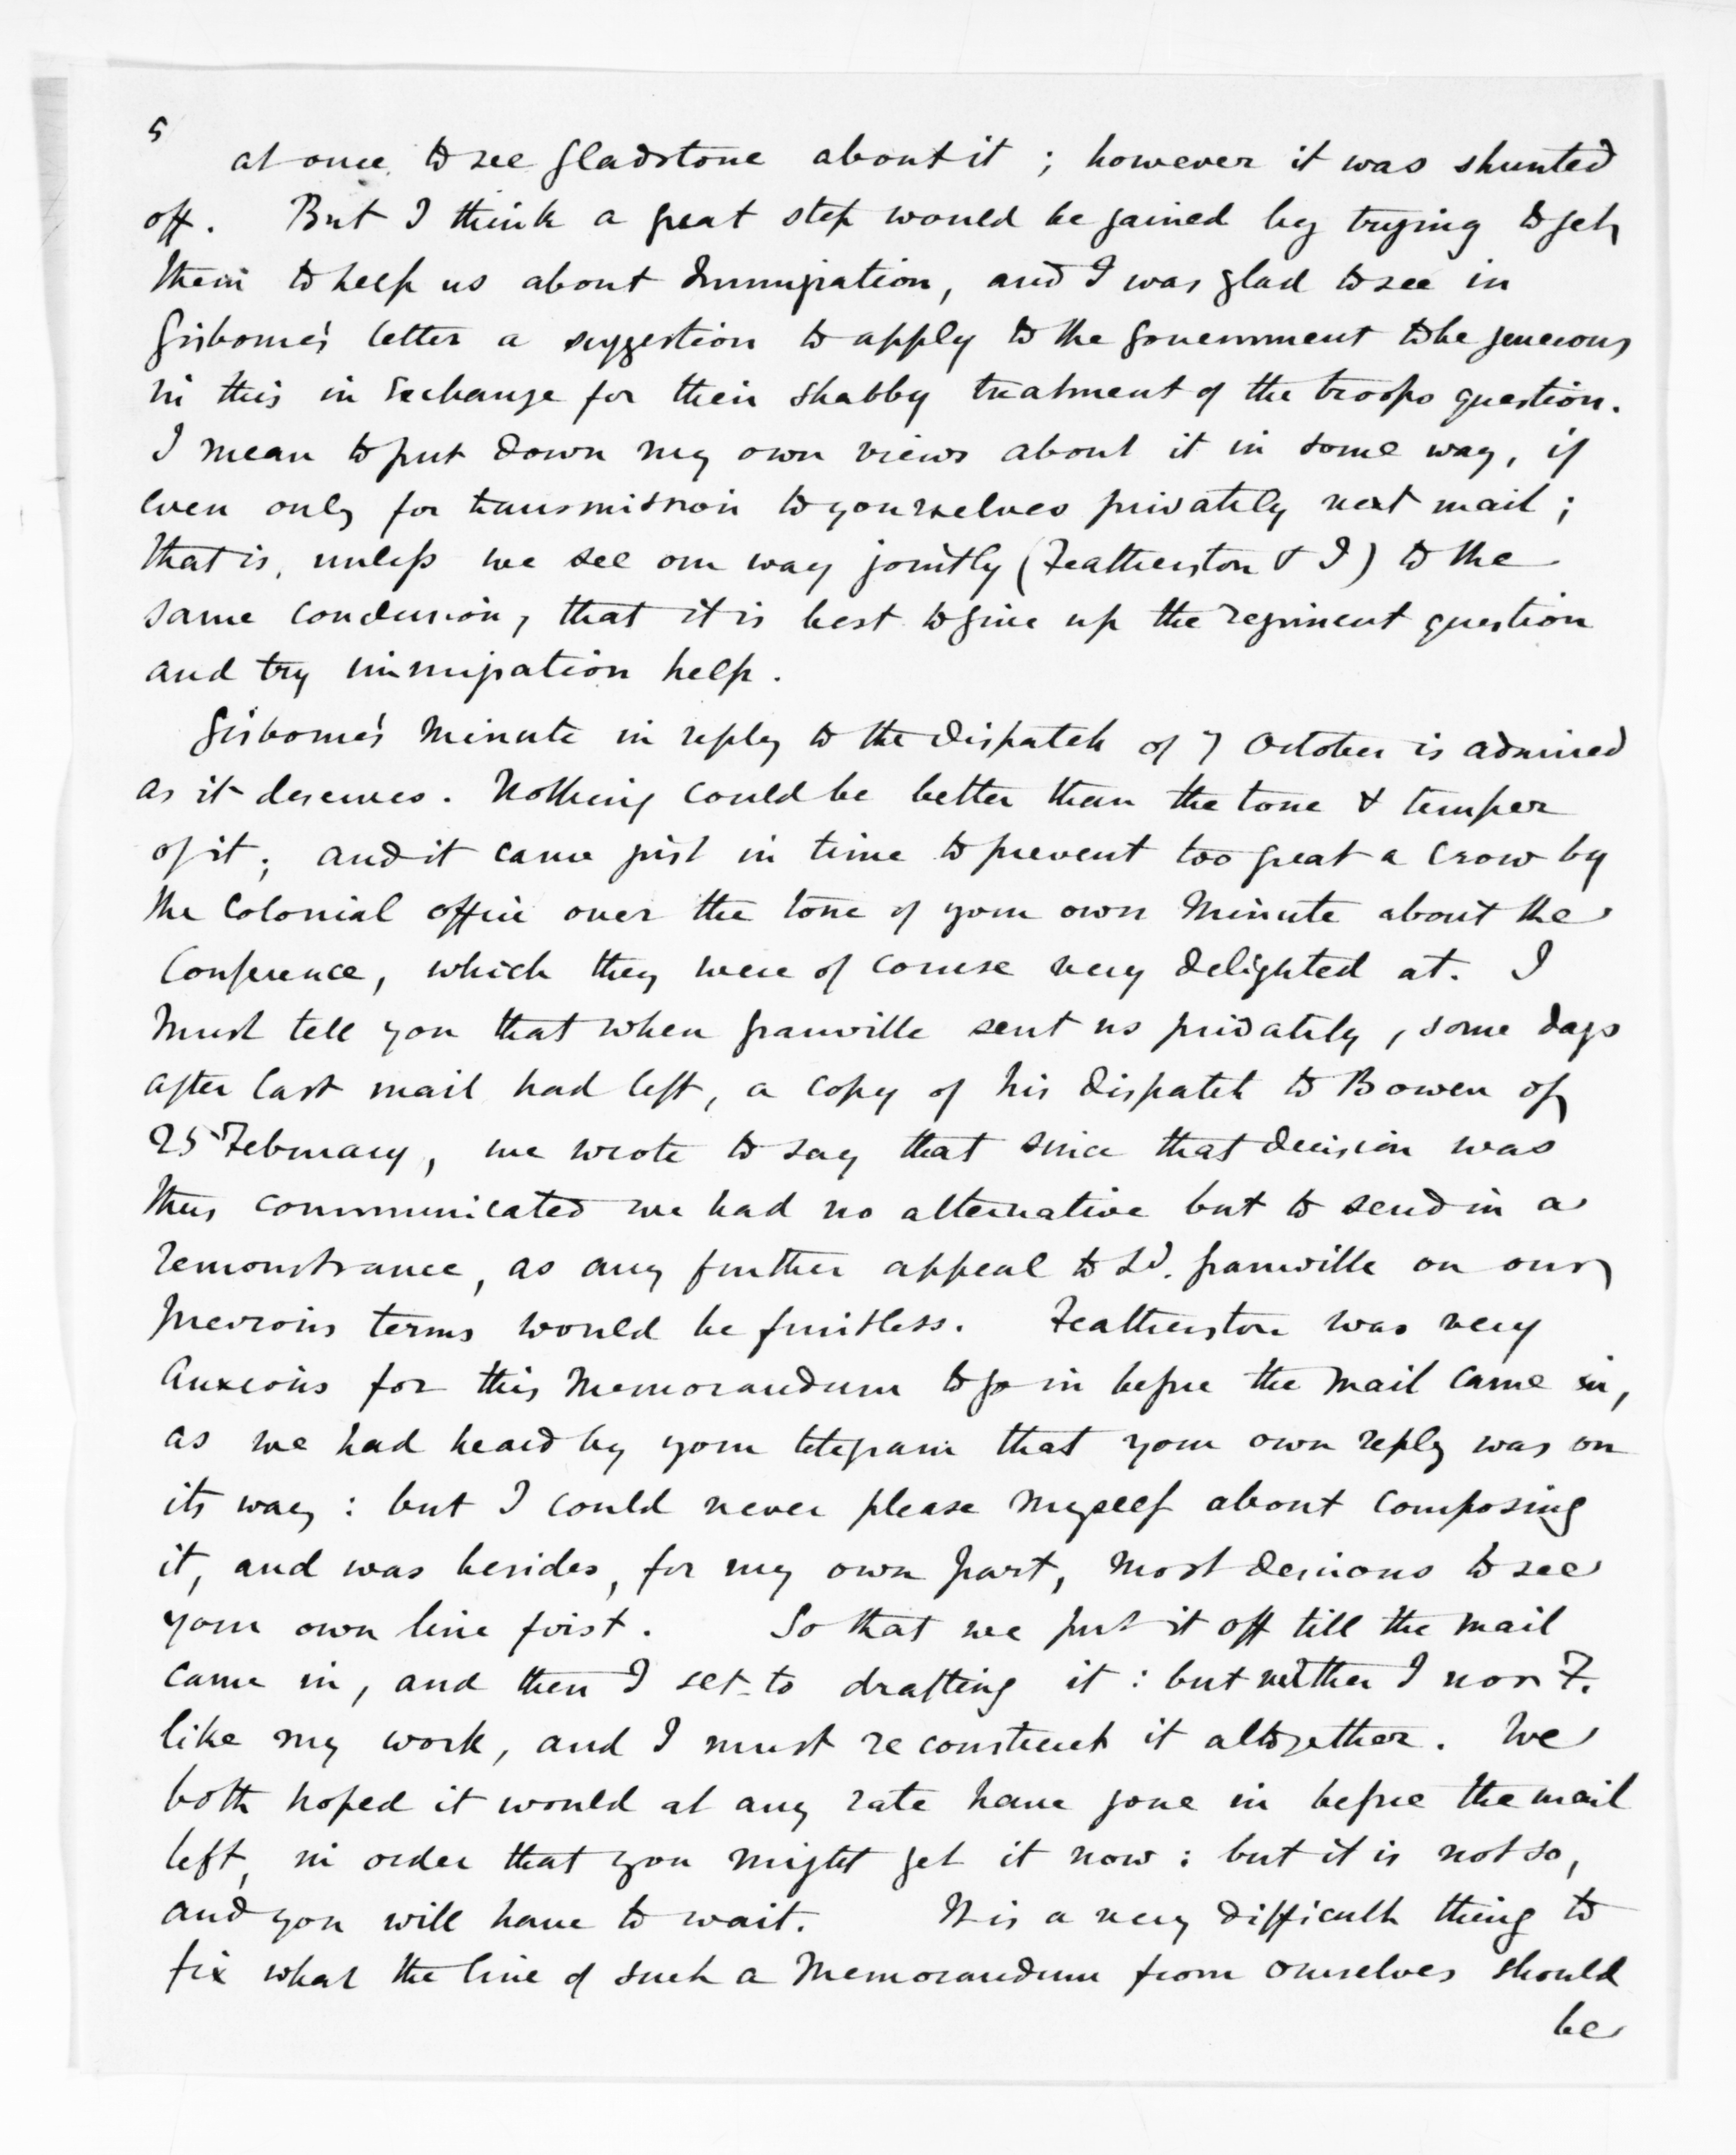 5
at once to see Gladstone about it ; however it was shunted
off. But I think a great step would be gained by trying to get
them to help us about Immigration, and I was glad to see in
Gisborne's letter a suggestion to apply to the Government to be generous
in this in exchange for their shabby treatment of the troops question.
I mean to put down my own views about it in some way, if
even only for transmission to yourselves privately next mail ;
that is, unless we see our way jointly (Featherston & I) to the
same conclusion, that it is best to give up the regiment question
and try immigration help.
Gisborne's Minute in reply to the dispatch of 7 October is admired
as it deserves. Nothing could be better than the tone & temper
of it ; and it came just in time to prevent too great a crow by
the Colonial office over the tone of your own Minute about the
Conference, which they were of course very delighted at. I
must tell you that when Granville sent us privately, some days
after last mail had left, a copy of his dispatch to Bowen of
25 February, we wrote to say that since that decision was
thus communicated we had no alternative but to send in a
remonstrance, as any further appeal to Ld. Granville on our
previous terms would be fruitless. Featherston was very
anxious for this Memorandum to go in before the mail came in,
as we had heard by your telegram that your own reply was on
its way : but I could never please myself about composing
it, and was besides, for my own part, most desirous to see
your own line first. So that we put it off till the mail
came in, and then I set to drafting it : but neither I nor F.
like my work, and I must reconstruct it altogether. We
both hoped it would at any rate have gone in before the mail
left, in order that you might get it now : but it is not so,
and you will have to wait. It is a very difficult thing to
fix what the line of such a Memorandum from ourselves should
be